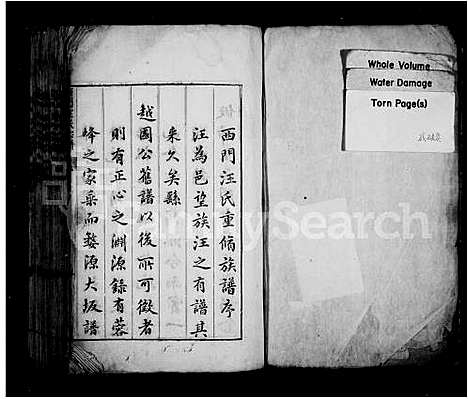 西門汪氏重脩族譜序
汪為邑望族汪之有譜其
來久矣縣
越國公舊譜以後所可徵者
則有正心之淵源錄有蓉
峰之家乘而婺源大坂譜
Whole Volume
Water Damage
Torn Page(s)
FamilySearch